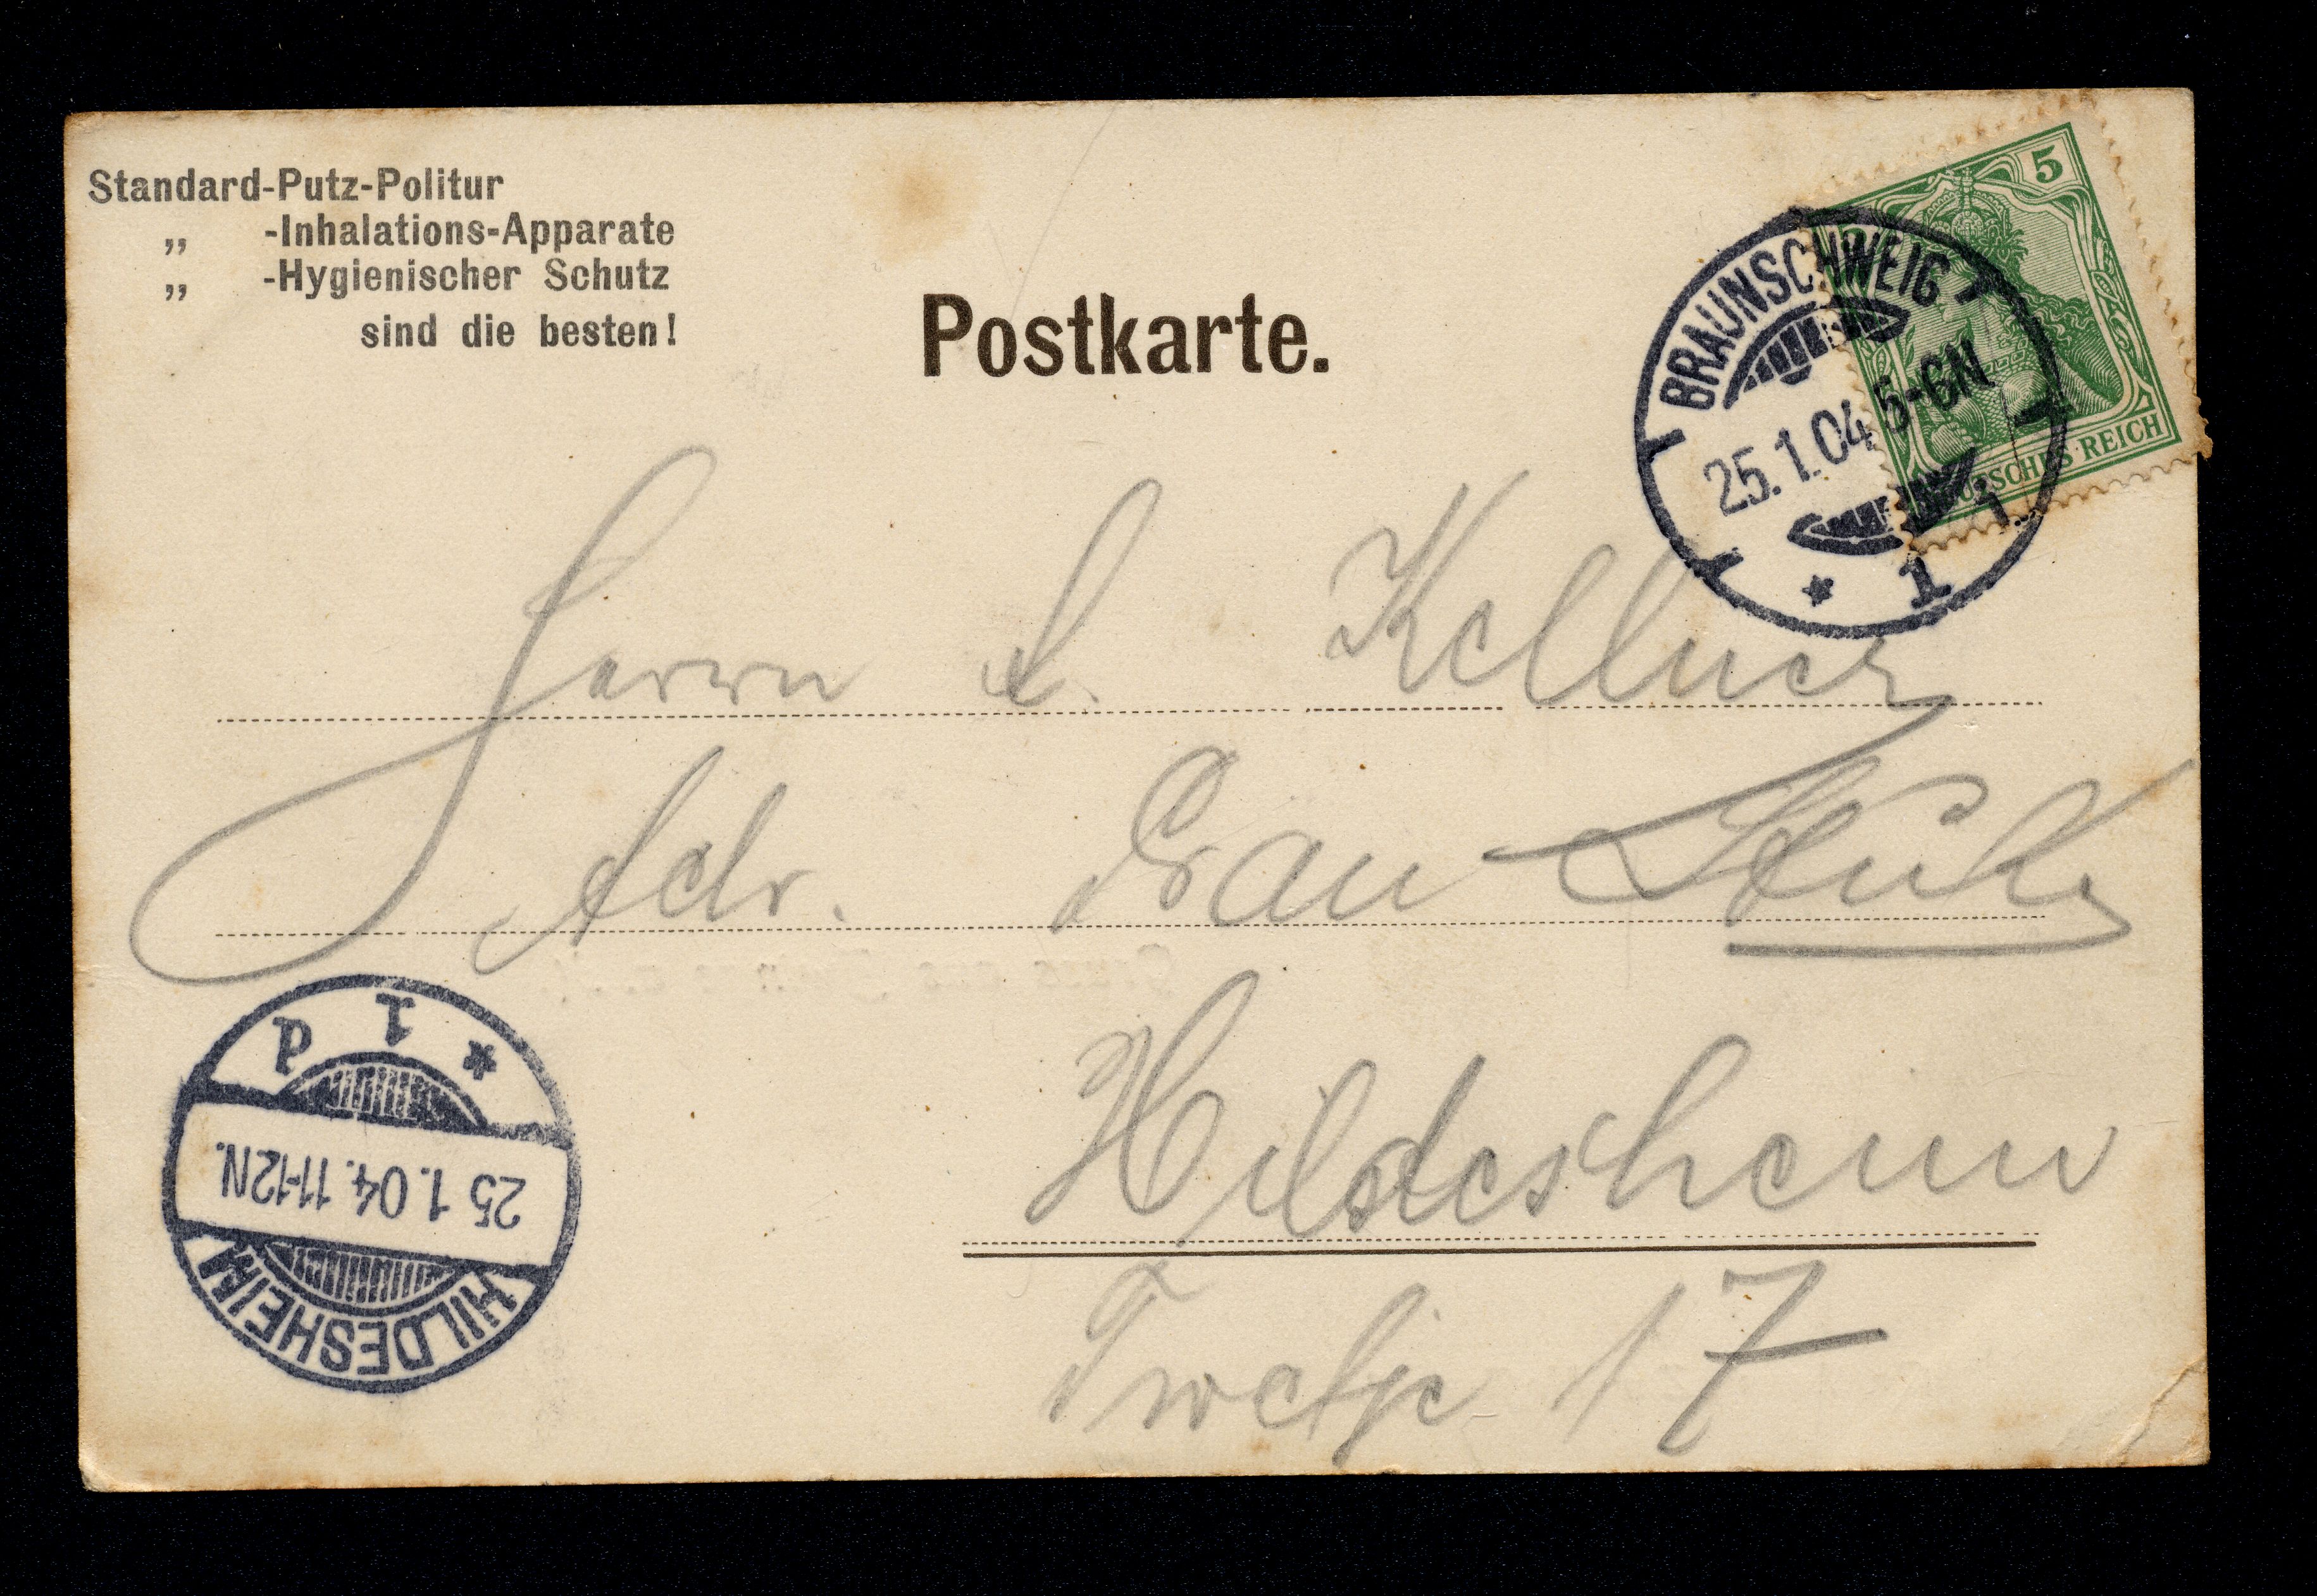 Standard-Putz-Politur
„ -Inhalations-Apparate
„ -Hygienischer Schutz
sind die besten!
Postkarte.
5
DEUTSCHES REICH
BRAUNSCHWEIG
25.1.04 5-6N
* 1
Herrn L. Kellner
Adr. Frau
Hildesheim
17
* 1 d
25 1.04. 11-12N.
HILDESHEIM